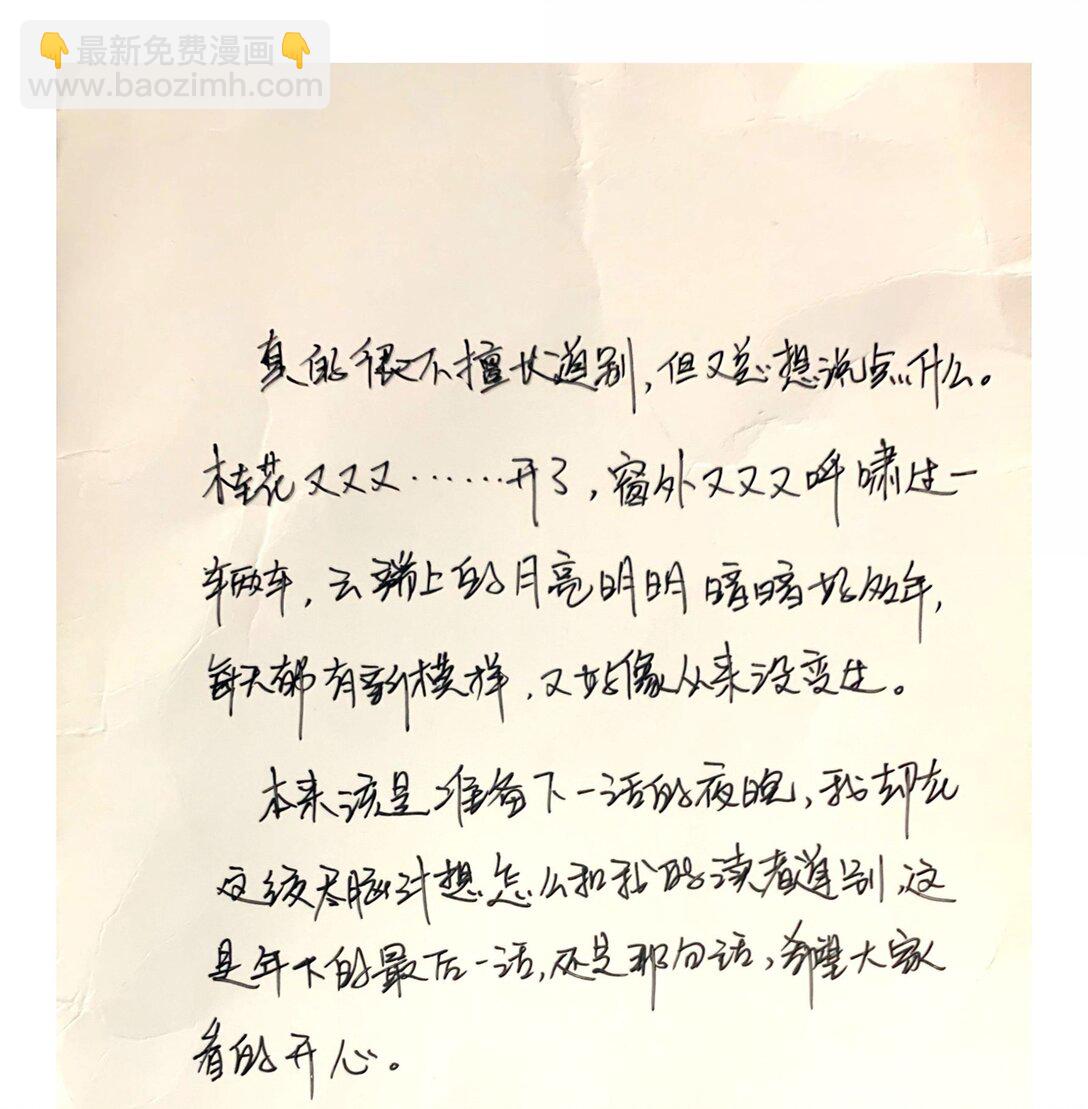 👇最新免费漫画👇
www.baozimh.com
真的很不擅长道别,但又总想说点什么。
桂花又又又……开了,窗外又又又呼啸过一
辆车,云端上的月亮明明暗暗好多年,
每天都有新模样,又好像从来没变过。
本来该是准备下一话的夜晚,我却在
这绞尽脑汁想怎么和我的读者道别,这
是年下的最后一话,还是那句话,希望大家
看的开心。